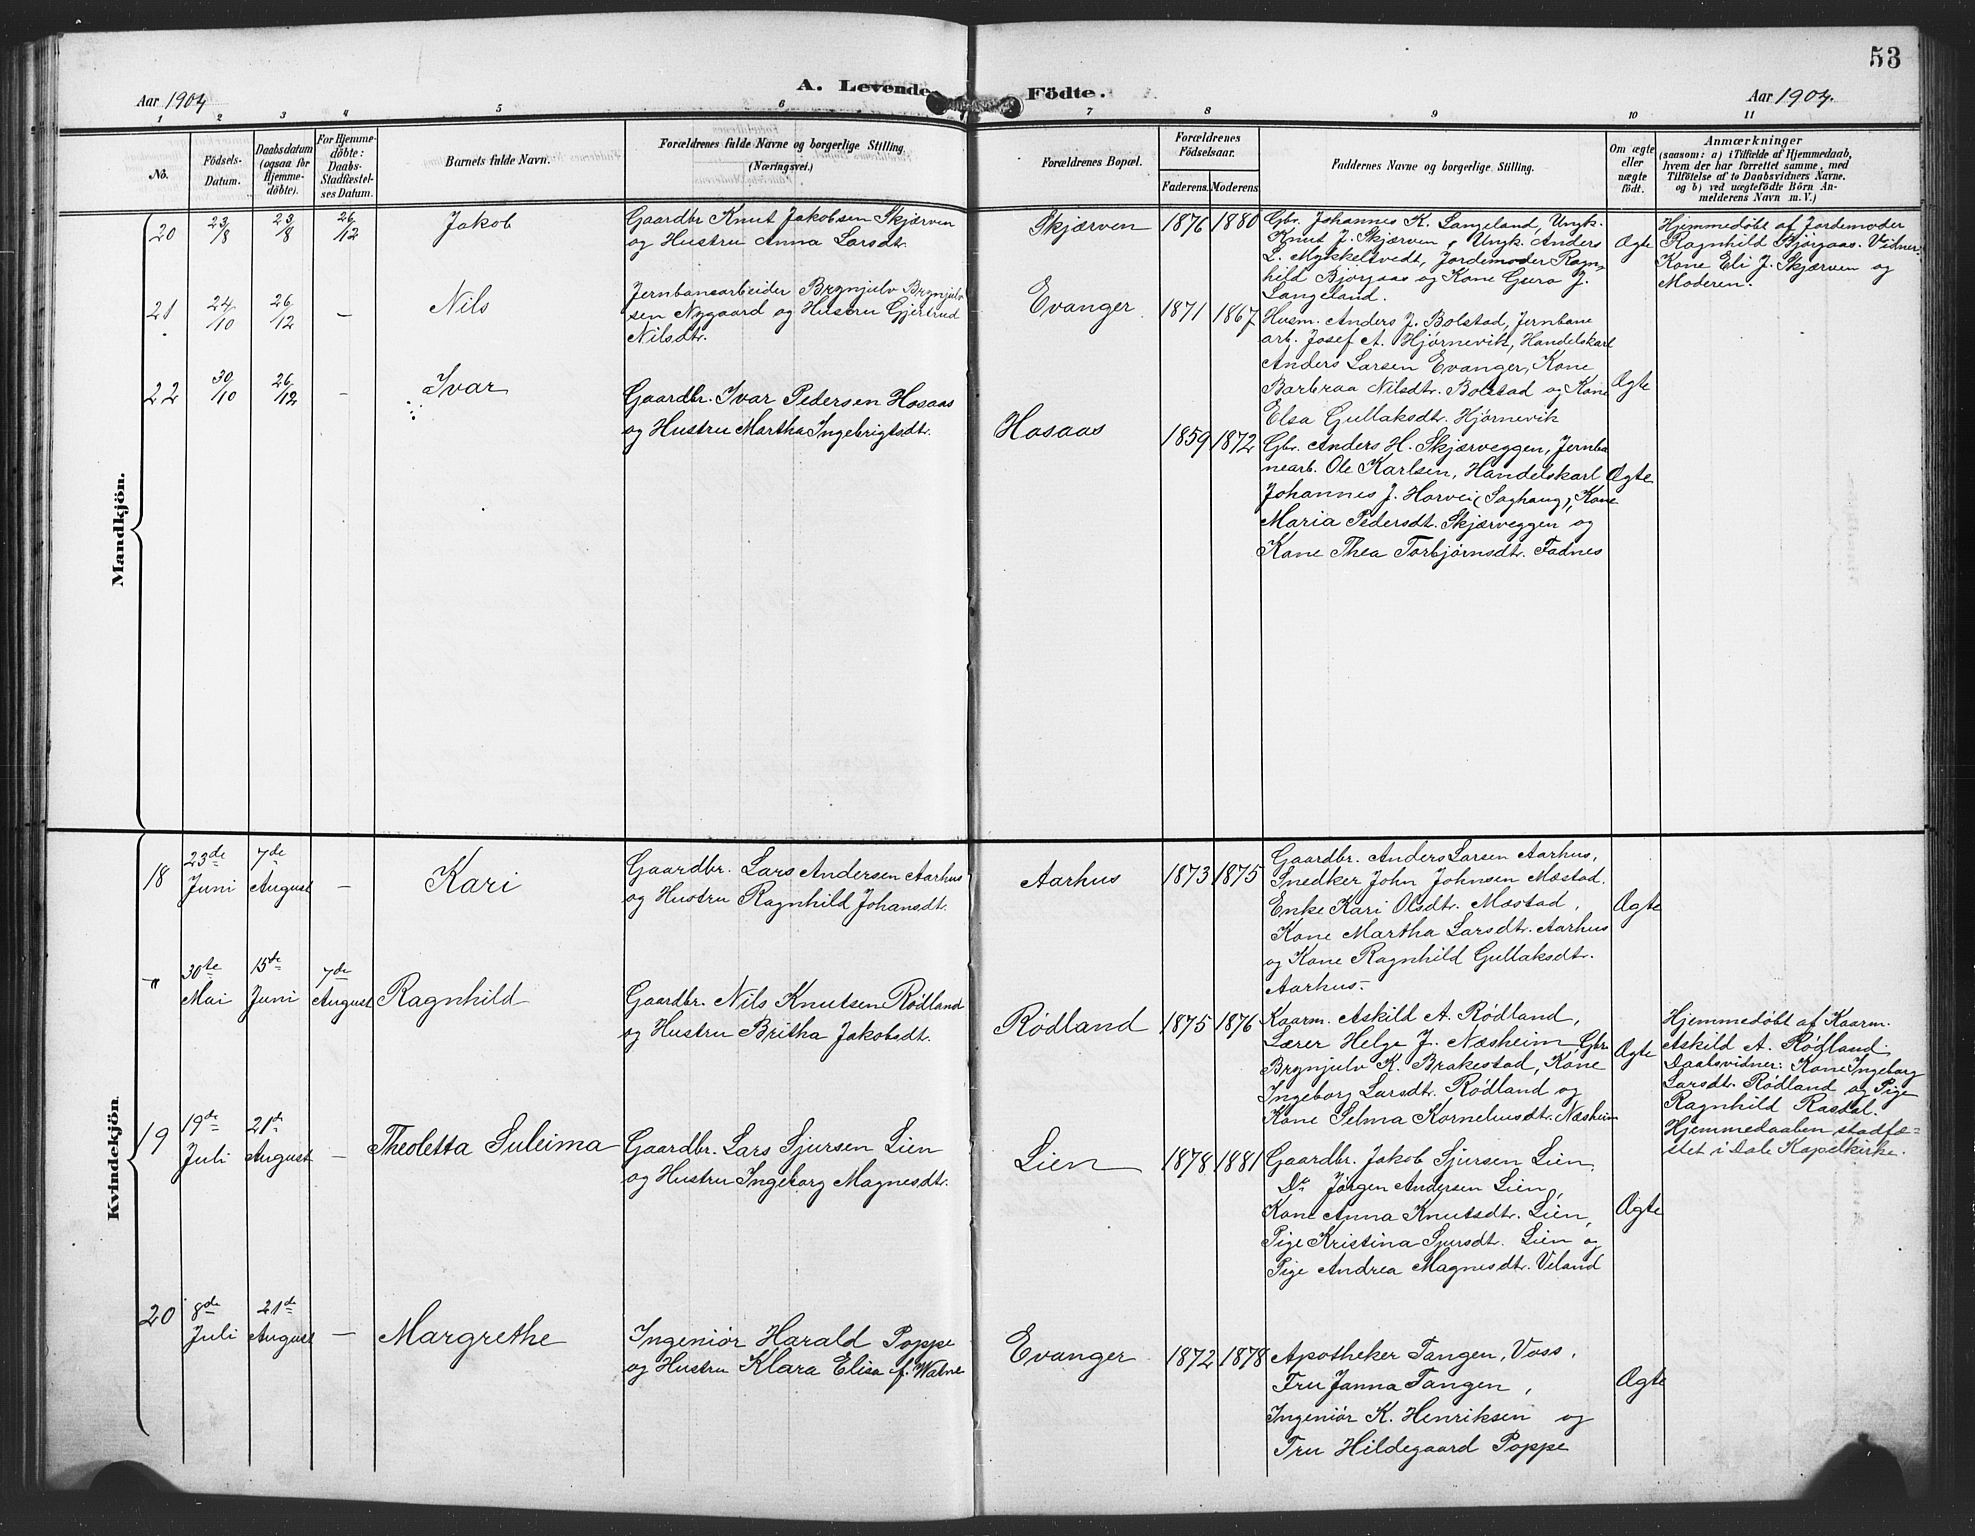 53
A. Levende Födte.
Aar 1904
Aar 1904.
1 2 3 4 5 6 7 8 9 10 11
No.
Födsels-
Datum.
Daabsdatum
(ogsaa for
Hjemme-
döbte).
For Hjemme-
döbte:
Daabs-
Stadfæstel-
ses Datum.
Barnets fulde Navn.
Forældrenes fulde Navne og borgerlige Stilling
(Næringsvei.)
Forældrenes Bopæl.
Forældrenes
Födselsaar.
Faderens. Moderens.
Faddernes Navne og borgerlige Stilling.
Om ægte
eller
uægte
födt.
Anmærkninger
(saasom: a) i Tilfælde af Hjemmedaab,
hvem der har forrettet samme, med
Tilföielse af to Daabsvidners Navne,
og b) ved uægtefödte Börn An-
melderens Navn m. V.)
Mandkjön.
20
23/8
23/8
26/12
Jakob
Gaardbr Knut Jakobsen Skjærven
og Hustru Anna Larsdt.
Skjærven
1876 1880
Gbr. Johannes K. Langeland, Ungk.
Knut J. Skjærven, Ungk. Anders
L. Mykkeltvedt, Jordemoder Ragn-
hild Bjørgaas og Kone Guro J.
Langeland.
Ægte
Hjemmedøbt af Jordemoder
Ragnhild Bjørgaas. Vidner:
Kone Eli J. Skjærven og
Moderen.
21
24/10
26/12
—
Nils
Jernbanearbeider Brynjulv Brynjulv-
sen Nygaard og Hustru Gjertrud
Nilsdtr.
Evanger
1871 1867
Husm. Anders J. Bolstad, Jernbane
arb. Josef A. Hjørnevik, Handelskarl
Anders Larsen Evanger, Kone
Barbraa Nilsdtr. Bolstad og Kone
Elsa Gullaksdtr. Hjørnevik
Ægte
22
30/10
26/12
—
Ivar
Gaardbr. Ivar Pedersen Hosaas
og Hustru Martha Ingebrigtsdt.
Hosaas
1859 1872
Gbr. Anders H. Skjærveggen, Jernba
nearb. Ole Karlsen, Handelskarl
Johannes J. Horvei (Saghaug), Kone
Maria Pedersdt. Skjærveggen og
Kone Thea Torbjørnsdtr. Fadnes
Ægte
Kvindekjön
18
23de Juni
7de August
—
Kari
Gaardbr. Lars Andersen Aarhus
og Hustru Ragnhild Johansdt.
Aarhus
1873 1875
Gaardbr. Anders Larsen Aarhus,
Snedker John Johnsen Mæstad.
Enke Kari Olsdtr. Mæstad,
Kone Martha Larsdtr. Aarhus
og Kone Ragnhild Gullaksdtr.
Aarhus.
Ægte
"
30te Mai
15de Juni
7de August
Ragnhild
Gaardbr. Nils Knutsen Rødland
og Hustru Britha Jakobsdt.
Rødland
1875 1876
Kaarm. Askild A. Rødland,
Lærer Helge J. Næsheim, Gbr.
Brynjulv K. Brakestad, Kone
Ingeborg Larsdt. Rødland og
Kone Selma Korneliusdt. Næsheim
Ægte
Hjemmedøbt af Kaarm.
Askild A. Rødland.
Daabsvidner: Kone Ingeborg
Larsdt. Rødland og Pige
Ragnhild Rasdal.
Hjemmedaaben stadfæ-
stet i Dale Kapelkirke.
19
19de Juli
21de August
—
Theoletta Suleima
Gaardbr. Lars Sjursen Lien
og Hustru Ingeborg Magnesdt.
Lien
1878 1881
Gaardbr. Jakob Sjursen Lien.
Do Jørgen Andersen Lien,
Kone Anna Knutsdtr. Lien,
Pige Kristina Sjursdt. Lien og
Pige Andrea Magnesdtr. Veland
Ægte
20
8de Juli
21de August
—
Margrethe
Ingeniør Harald Poppe
og Hustru Klara Elisa f. Walne
Evanger
1872 1878
Apotheker Tangen, Voss,
Fru Janna Tangen,
Ingeniør K. Henriksen og
Fru Hildegaard Poppe
Ægte